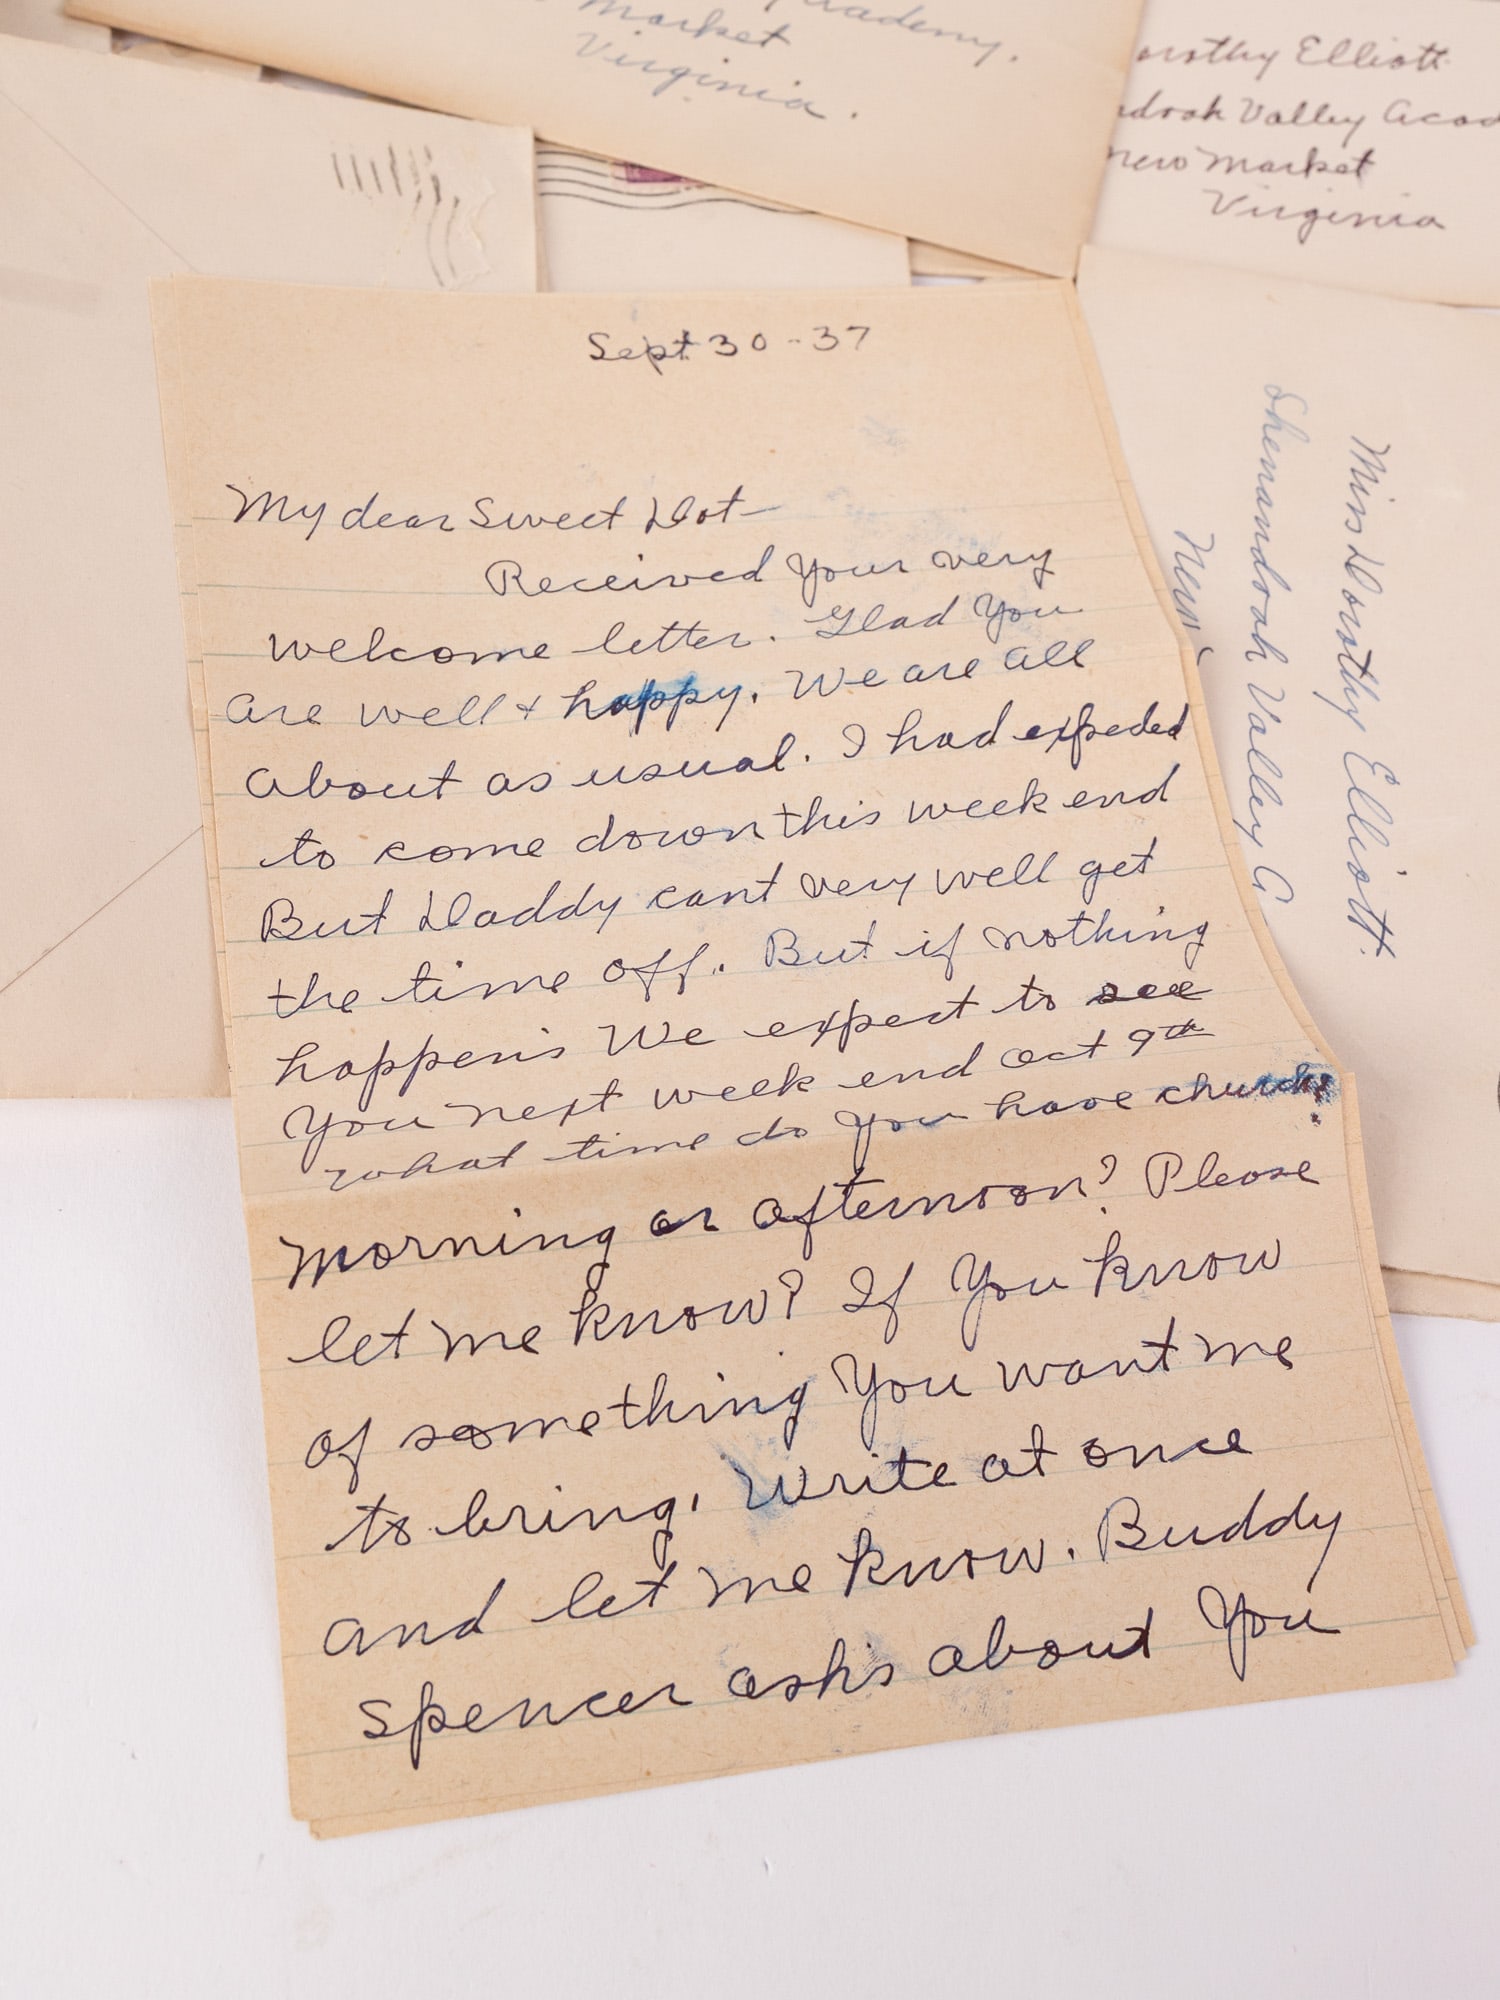 Academy.
Market
Virginia.
orothy Elliott
ndoah Valley Acad
New Market
Virginia
Miss Dorothy Elliott.
Shenandoah Valley A
New
Sept 30-37
My dear Sweet Dot-
Received Your very
welcome letter. Glad You
are well + happy. We are all
about as usual. I had expected
to come down this week end
But Daddy cant very well get
the time off. But if nothing
happens We expect to see
You next week end Oct 9th
What time do You have church?
morning or afternoon? Please
let me know? If You know
of something You want me
to bring. Write at once
and let me know. Buddy
Spencer asks about You